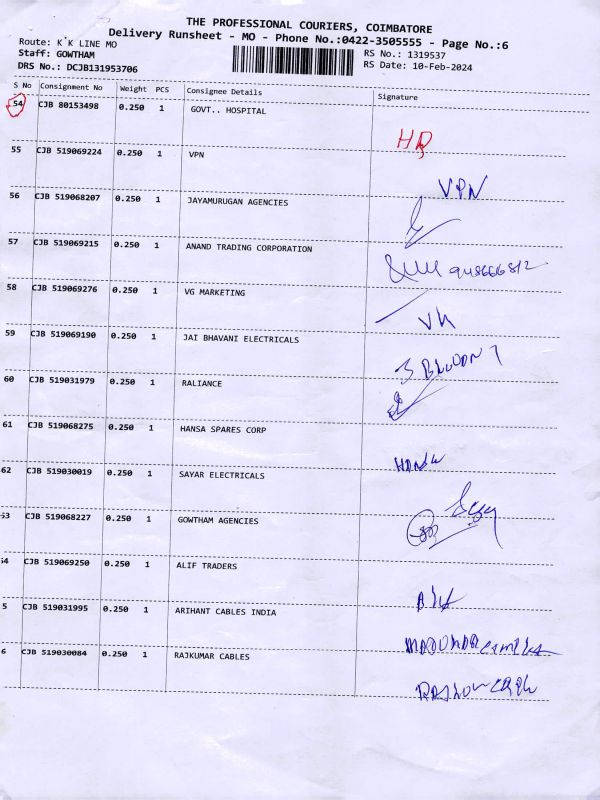 THE PROFESSIONAL COURIERS, COIMBATORE
Delivery Runsheet - MO - Phone No.:0422-3505555 - Page No.:6
Route: K˙K LINE MO
RS No.: 1319537
Staff: GOWTHAM
RS Date: 10-Feb-2024
DRS No.: DCJB131953706
S No Consignment No Weight PCS Consignee Details Signature
54 CJB 80153498 0.250 1 GOVT.. HOSPITAL
55 CJB 519069224 0.250 1 VPN
VPN
56 CJB 519068207 0.250 1 JAYAMURUGAN AGENCIES
57 CJB 519069215 0.250 1 ANAND TRADING CORPORATION
58 CJB 519069276 0.250 1 VG MARKETING
59 CJB 519069190 0.250 1 JAI BHAVANI ELECTRICALS
60 CJB 519031979 0.250 1 RALIANCE
61 CJB 519068275 0.250 1 HANSA SPARES CORP
62 CJB 519030019 0.250 1 SAYAR ELECTRICALS
53 CJB 519068227 0.250 1 GOWTHAM AGENCIES
54 CJB 519069250 0.250 1 ALIF TRADERS
5 CJB 519031995 0.250 1 ARIHANT CABLES INDIA
6 CJB 519030084 0.250 1 RAJKUMAR CABLES